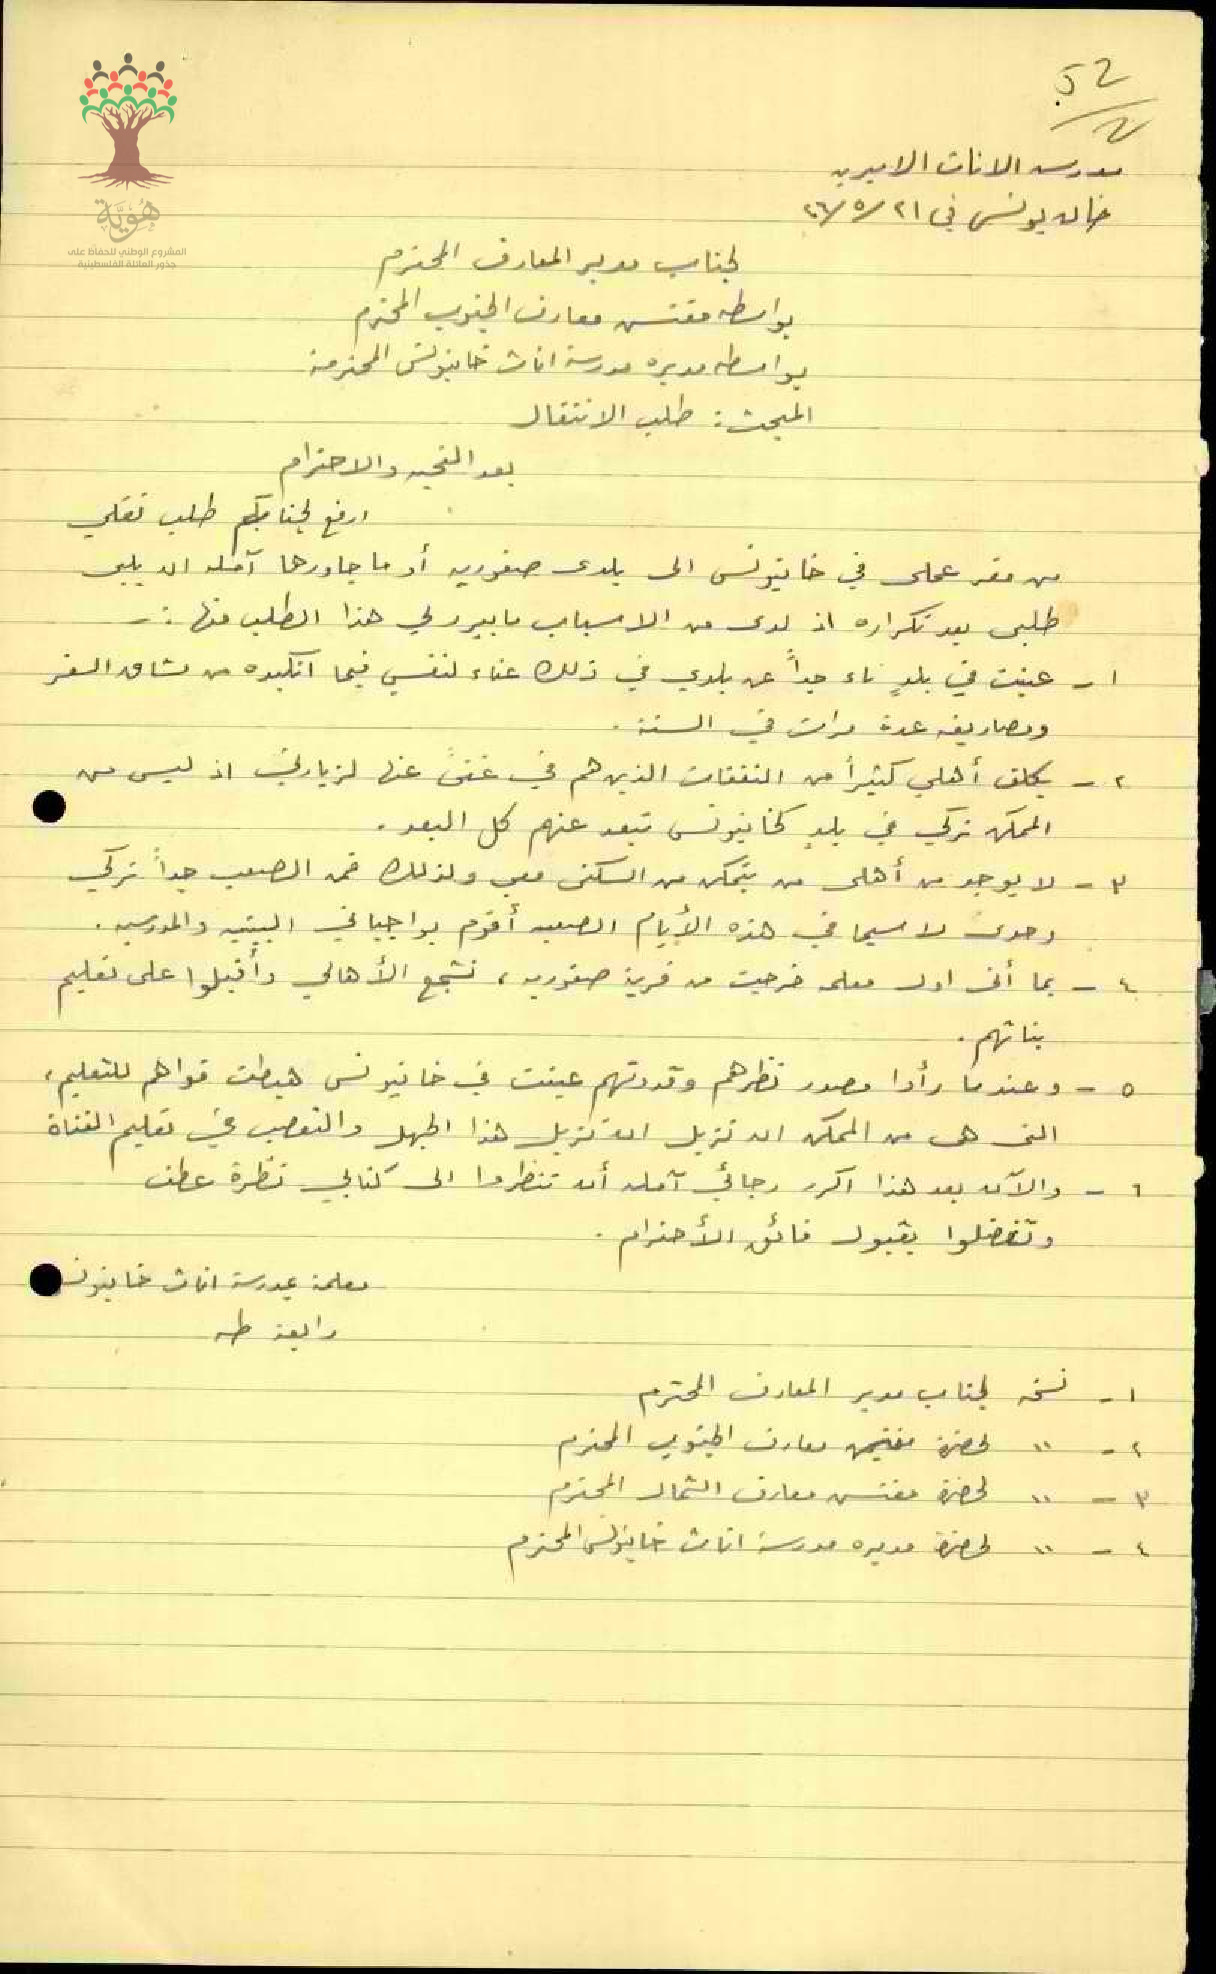 52
مدرسه الاناث الاميريه
خان يونس في ٢١/٥/٤٦
هُوِيَّة
المشروع الوطني للحفاظ على
جذور العائلة الفلسطينية
لجناب مدير المعارف المحترم
بواسطه مفتش معارف الجنوب المحترم
بواسطه مديره مدرسة اناث خانيونس المحترمة
المبحث : طلب الانتقال
بعد التحيه والاحترام
ارفع لجنابكم طلب نقلي
من مقر عملي في خانيونس الى بلدى صفوريه أو ما جاورها آمله ان يلبى
طلبى بعد تكراره اذ لدى من الاسباب ما يبرر لي هذا الطلب منها :-
١ - عينت في بلدٍ ناء جداً عن بلدي في ذلك عناء لنفسي فيما اتكبده من مشاق السفر
ومصاريفه عدة مرات في السنة .
٢ - يكلف أهلي كثيراً من النفقات الذين هم في غنىً عنها لزيارتي اذ ليس من
الممكن تركي في بلدٍ كخانيونس تبعد عنهم كل البعد .
٣ - لا يوجد من أهلى من يتمكن من السكن معي ولذلك فمن الصعب جداً تركي
وحدى لا سيما في هذه الأيام الصعبه أقوم بواجباتي البيتيه والمدرسيه .
٤ - بما أنى اول معلمه خرجت من قرية صفوريه ، تشجع الأهالي وأقبلوا على تعليم
بناتهم .
٥ - وعندما رأوا مصدر نظرهم وقدوتهم عينت في خانيونس هبطت قواهم للتعليم ،
التى هى من الممكن ان تزيل ان تزيل هذا الجهل والتعصب في تعليم الفتاة
٦ - والآن بعد هذا اكرر رجائي آمله أن تنظروا الى كتابي نظرة عطف
وتفضلوا بقبول فائق الأحترام .
معلمة بمدرسة اناث خانيونس
رابعة طه
١ - نسخه لجناب مدير المعارف المحترم
٢ - " لحضرة مفتش معارف الجنوب المحترم
٣ - " لحضرة مفتش معارف الشمال المحترم
٤ - " لحضرة مديره مدرسة اناث خانيونس المحترم